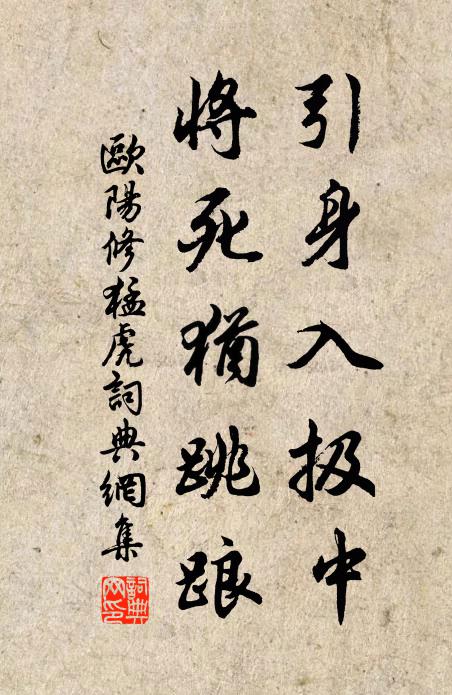 引身入扱中
將死猶跳踉
歐陽修猛虎詞典網集
詞典網印